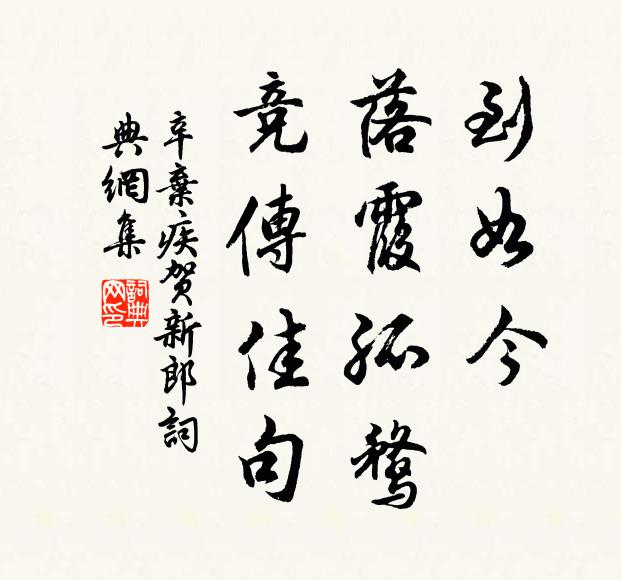 到如今
落霞孤鶩
竞傳佳句
辛棄疾贺新郎詞
典網集
詞典
网印